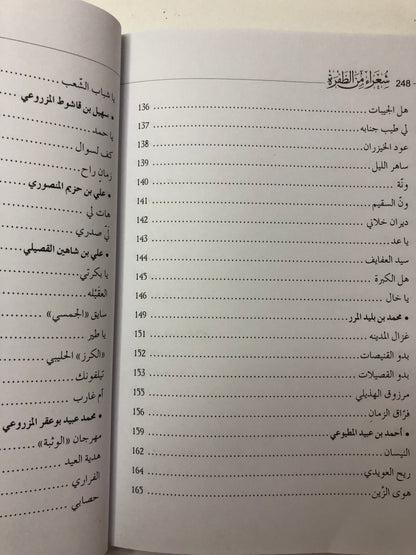 248 شعراء من الظفرة
هل الجيبات 136
لي طيب جنابه 137
عود الخيزران 138
ساهر الليل 139
ونّة 140
ونّ السقيم 141
ديران خلاني 142
يا عد 143
سيد العفايف 144
هل الكبرة 145
يا خال 146
• محمد بن بليد المرر 149
غزال المدينه 151
بدو القنيصات 152
بدو القصيلات 153
مرزوق الهذيلي 155
فرّاق الزمان 156
• أحمد بن عبيد المطيوعي 159
النيسان 162
ريح العويدي 164
هوى الزّين 165
يا شباب الشّعب
• سهيل بن قاشوط المزروعي
يا حمد
كف لسوال
زمان راح
• علي بن حزيم المنصوري
هات لي
ليّ صدري
• علي بن شاهين القصيلي
يا بكرتي
العقيْله
سابق «الجمسي»
يا طير
«الكرز» الحليبي
تيلفونك
أم غارب
• محمد عبيد بوعقر المزروعي
مهرجان «الوثبة»
هدية العيد
الفراري
حصابي